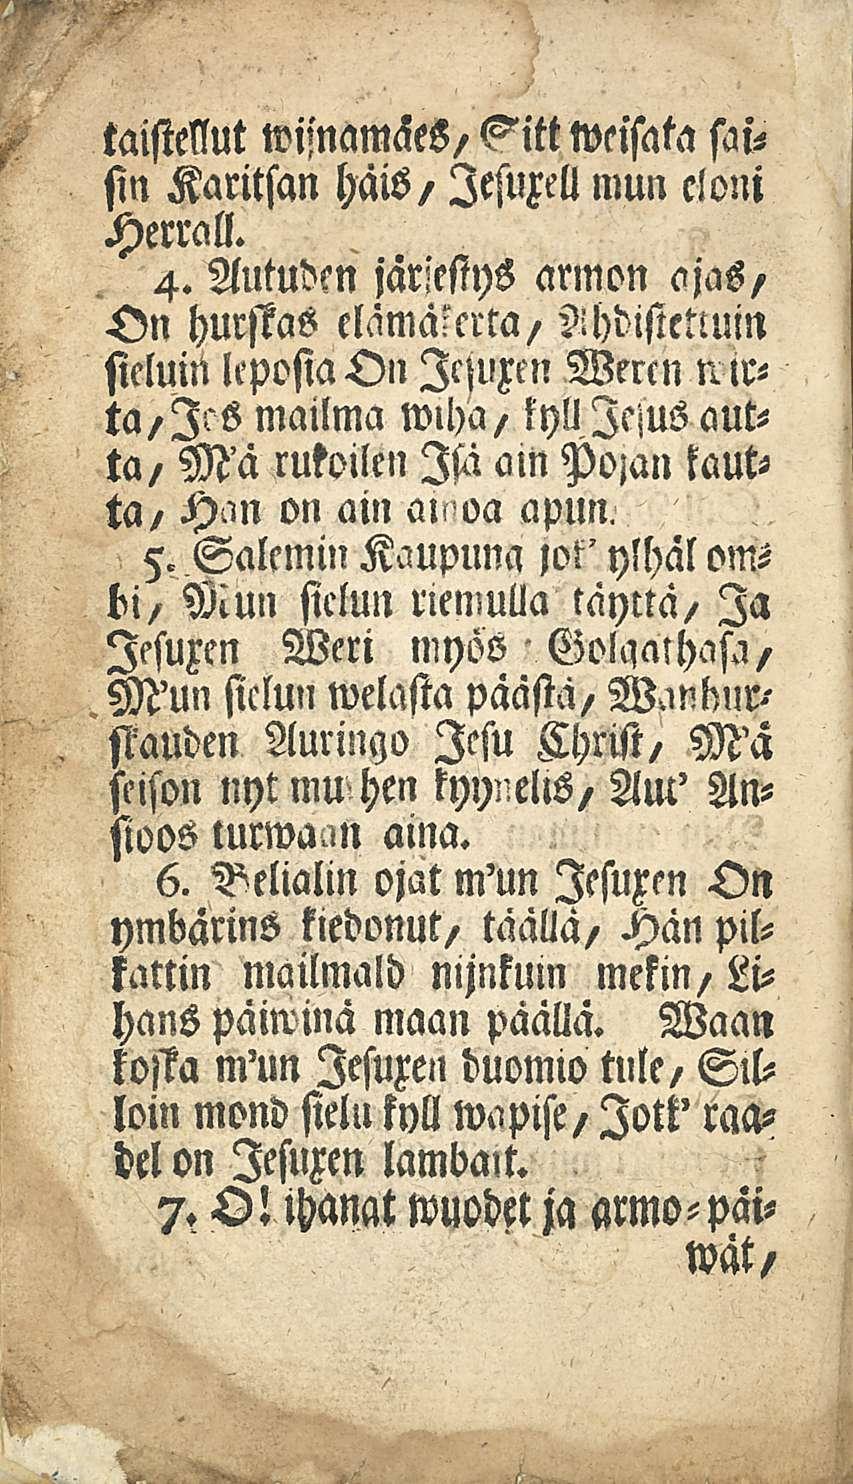 taistellut wijnamäes, Sitt weisata sai-
sin Karitsan häis, Jesuxell mun eloni
Herrall.
4. Autuden järjestys armon ajas,
On hurskas elämäkerta, Ahdistettuin
sieluin leposia On Jesuxen Weren wir-
ta, Jos mailma wiha, kyll Jesus aut-
ta, M'ä rukoilen Isä ain Pojan kaut-
ta, Han on ain ainoa apun.
5. Salemin Kaupung jok' ylhäl om-
bi, Mun sielun riemulla täyttä, Ja
Jesuxen Weri myös Golgathasa,
M'un sielun welasta päästä, Wanhur-
skauden Auringo Jesu Christ, M'ä
seison nyt murhen kyynelis, Aut' An-
sioos turwaan aina.
6. Belialin ojat m'un Jesuxen On
ymbärins kiedonut, täällä, Hän pil-
kattin mailmald nijnkuin mekin, Li-
hans päiwinä maan päällä. Waan
koska m'un Jesuxen duomio tule, Sil-
loin mond sielu kyll wapise, Jotk' raa-
del on Jesuxen lambait.
7. O! ihanat wuodet ja armo-päi-
wät,